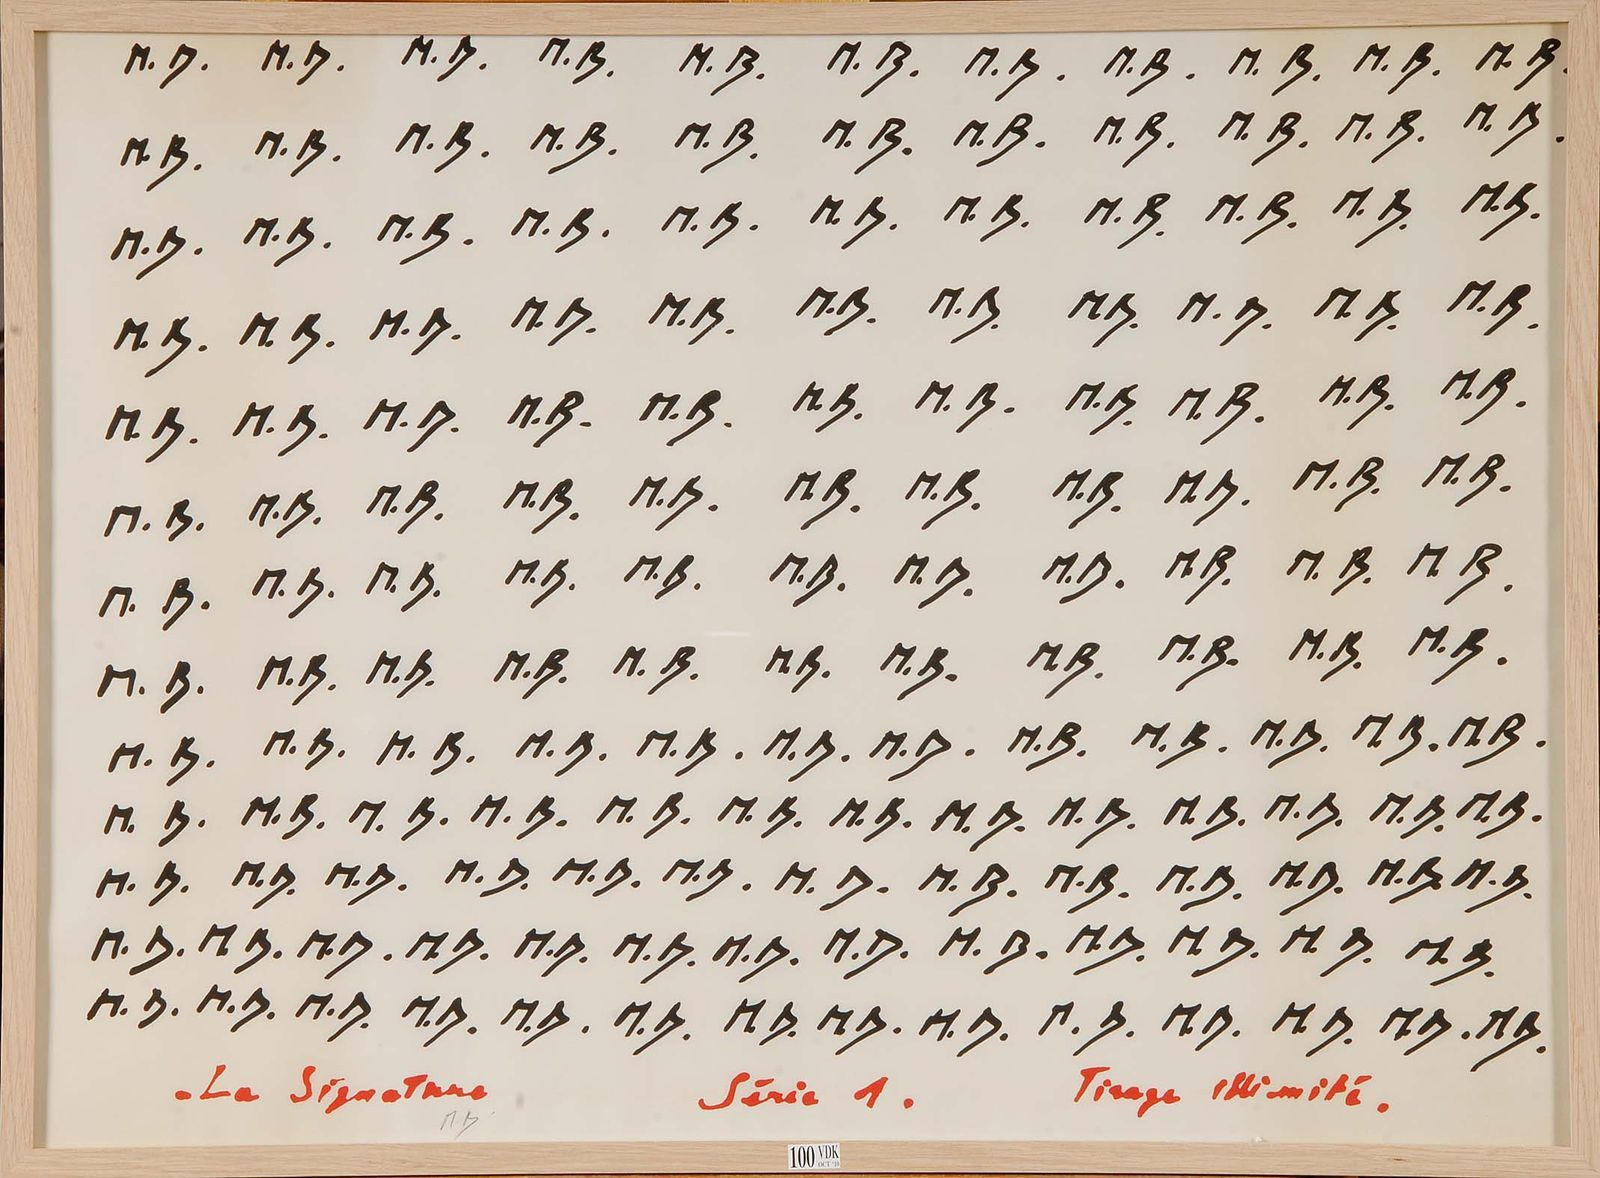 M.B. M.B. M.B. M.B. M.B. M.B. M.B. M.B. M.B. M.B. M.B.
M.B. M.B. M.B. M.B. M.B. M.B. M.B. M.B. M.B. M.B. M.B.
M.B. M.B. M.B. M.B. M.B. M.B. M.B. M.B. M.B. M.B. M.B.
M.B. M.B. M.B. M.B. M.B. M.B. M.B. M.B. M.B. M.B. M.B.
M.B. M.B. M.B. M.B. M.B. M.B. M.B. M.B. M.B. M.B. M.B.
M.B. M.B. M.B. M.B. M.B. M.B. M.B. M.B. M.B. M.B. M.B.
M.B. M.B. M.B. M.B. M.B. M.B. M.B. M.B. M.B. M.B. M.B.
M.B. M.B. M.B. M.B. M.B. M.B. M.B. M.B. M.B. M.B. M.B.
M.B. M.B. M.B. M.B. M.B. M.B. M.B. M.B. M.B. M.B. M.B. M.B.
M.B. M.B. M.B. M.B. M.B. M.B. M.B. M.B. M.B. M.B. M.B. M.B. M.B.
M.B. M.B. M.B. M.B. M.B. M.B. M.B. M.B. M.B. M.B. M.B. M.B. M.B.
M.B. M.B. M.B. M.B. M.B. M.B. M.B. M.B. M.B. M.B. M.B. M.B. M.B.
M.B. M.B. M.B. M.B. M.B. M.B. M.B. M.B. M.B. M.B. M.B. M.B. M.B. M.B.
-La Signature Série 1. Tirage illimité.
M.B.
100 VDK OCT '10